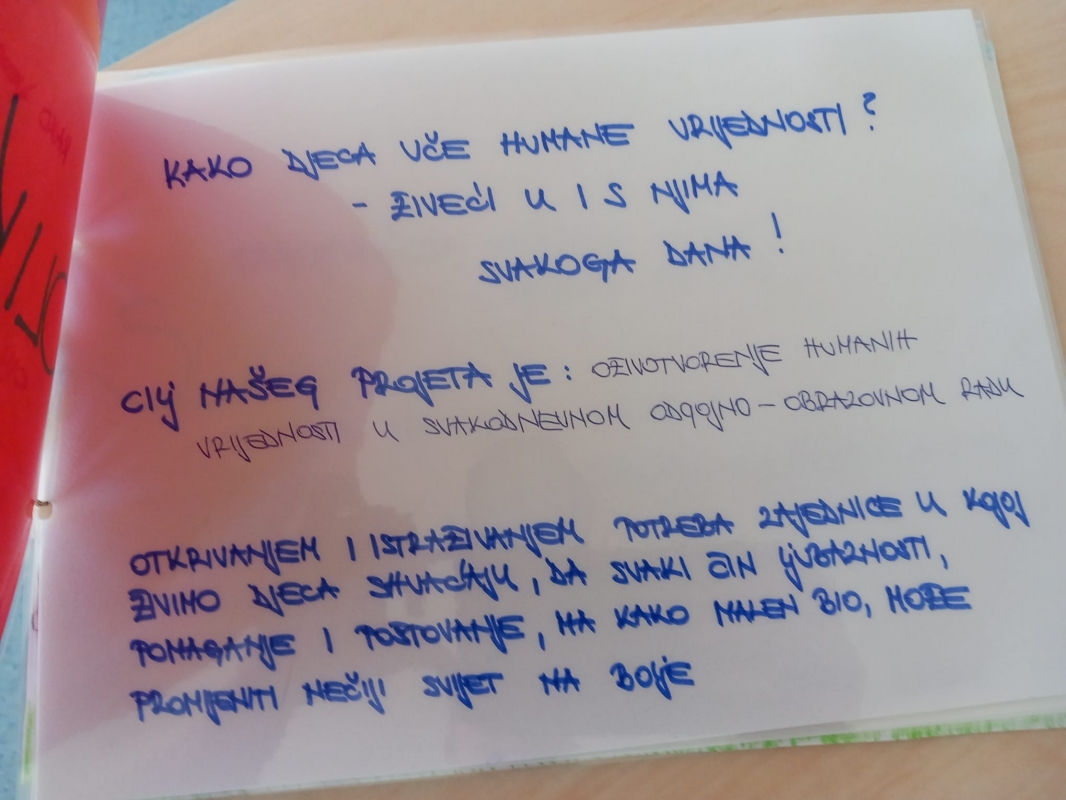 KAKO DJECA UČE HUMANE VRIJEDNOSTI?
- ŽIVEĆI U I S NJIMA
SVAKOGA DANA!
CILJ NAŠEG PROJETA JE: OŽIVOTVORENJE HUMANIH
VRIJEDNOSTI U SVAKODNEVNOM ODGOJNO-OBRAZOVNOM RADU
OTKRIVANJEM I ISTRAŽIVANJEM POTREBA ZAJEDNICE U KOJOJ
ŽIVIMO DJECA SHVAĆAJU, DA SVAKI ČIN LJUBAZNOSTI,
POMAGANJE I POŠTOVANJE, MA KAKO MALEN BIO, MOŽE
PROMJENITI NEČIJI SVIJET NA BOLJE